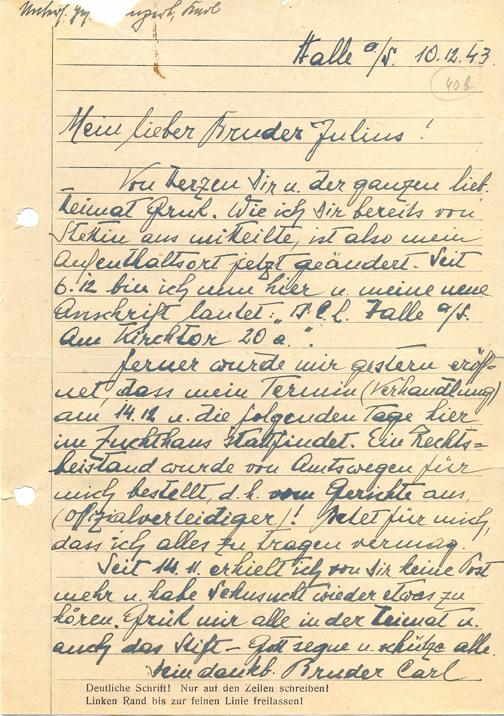 Halle a/S. 10.12.43
40b
Mein lieber Bruder Julius!
Von Herzen Dir u. der ganzen lieb.
Heimat Gruß. Wie ich Dir bereits von
Stettin aus mitteilte, ist also mein
Aufenthaltsort jetzt geändert. Seit
6.12 bin ich nun hier u. meine neue
Anschrift lautet: Halle a/S.
Am Kirchtor 20 a."
Ferner wurde mir gestern eröff-
net, dass mein Termin (Verhandlung)
am 14.12 u. die folgenden Tage hier
im Zuchthaus stattfindet. Ein Rechts-
beistand wurde von Amtswegen für
mich bestellt, d.h. vom Gerichte aus,
(Offizialverteidiger)! Betet für mich,
dass ich alles zu tragen vermag.
Seit 14.11. erhielt ich von Dir keine Post
mehr u. habe Sehnsucht wieder etwas zu
hören. Grüß mir alle in der Heimat u.
auch das Stift – Gott segne u. schütze alle.
Dein dankb. Bruder Carl
Deutliche Schrift! Nur auf den Zeilen schreiben!
Linken Rand bis zur feinen Linie freilassen!